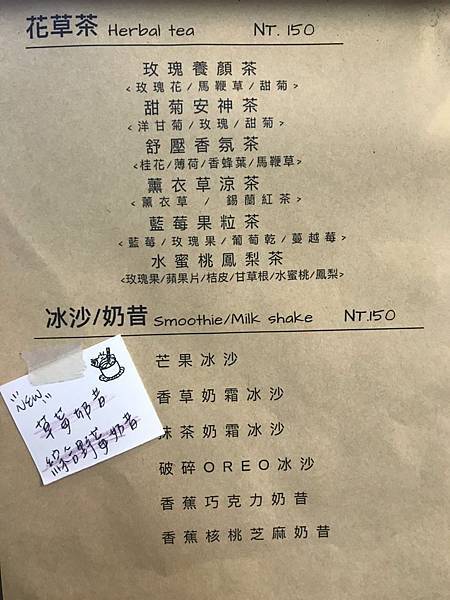 花草茶 Herbal tea NT. 150
玫瑰養顏茶
<玫瑰花/馬鞭草/甜菊>
甜菊安神茶
<洋甘菊/玫瑰/甜菊>
舒壓香氛茶
<桂花/薄荷/香蜂葉/馬鞭草>
薰衣草涼茶
<薰衣草 / 錫蘭紅茶>
藍莓果粒茶
<藍莓/玫瑰果/葡萄乾/蔓越莓>
水蜜桃鳳梨茶
<玫瑰果/蘋果片/桔皮/甘草根/水蜜桃/鳳梨>
冰沙/奶昔 Smoothie/Milk shake NT.150
芒果冰沙
香草奶霜冰沙
抹茶奶霜冰沙
破碎OREO冰沙
香蕉巧克力奶昔
香蕉核桃芝麻奶昔
NEW
草莓奶昔
綜合野莓奶昔